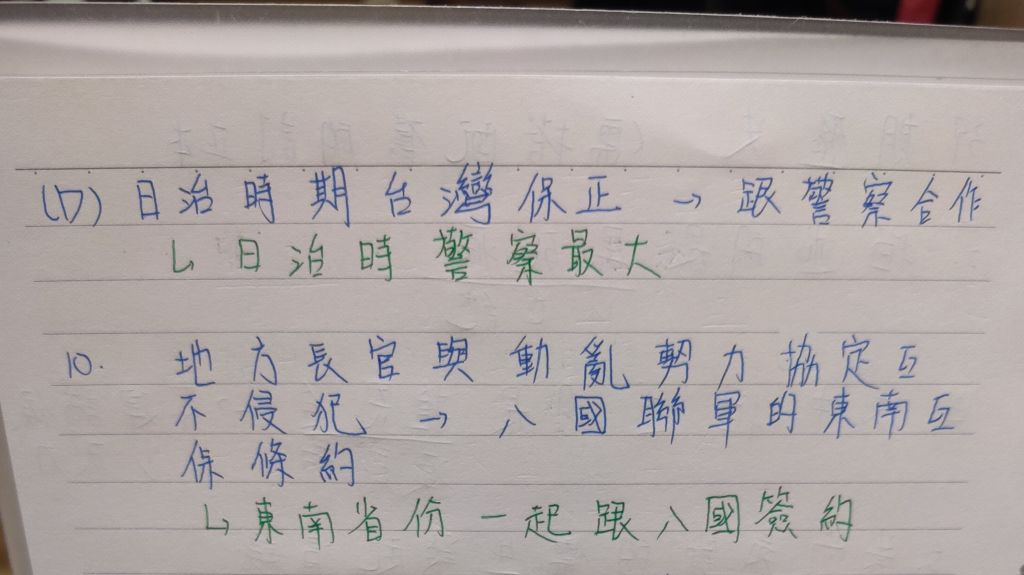 (D) 日治時期台灣保正 → 跟警察合作
↳ 日治時警察最大
10. 地方長官與動亂勢力協定互
不侵犯 → 八國聯軍的東南互
保條約
↳ 東南省份一起跟八國簽約